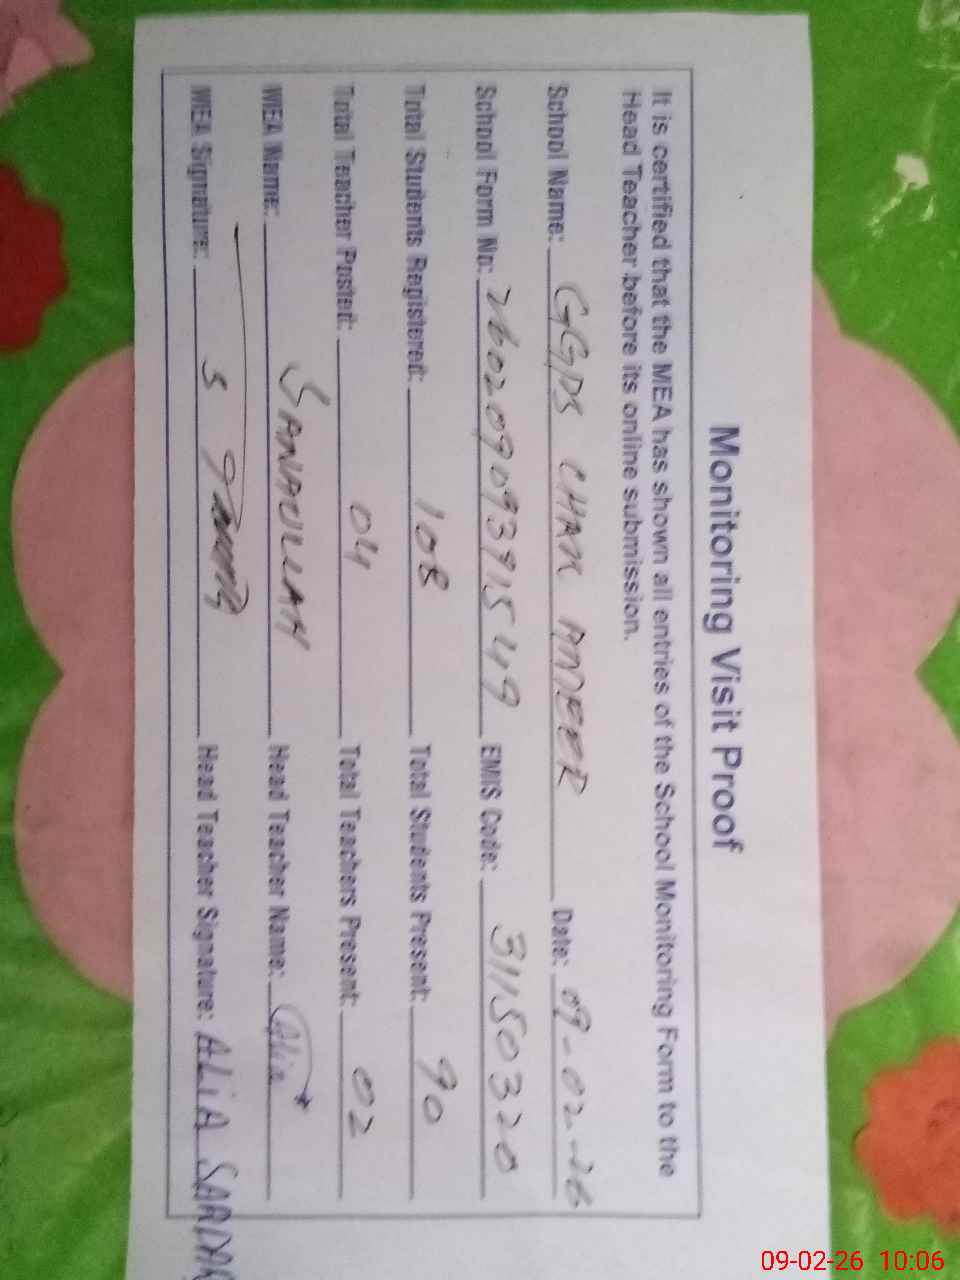 Monitoring Visit Proof
It is certified that the MEA has shown all entries of the School Monitoring Form to the
Head Teacher before its online submission.
School Name: GGPS CHAK AMEER Date: 09-02-26
School Form No: 260209093915449 EMIS Code: 31150320
Total Students Registered: 108 Total Students Present: 90
Total Teacher Posted: 04 Total Teachers Present: 02
MEA Name: SANAULLAH Head Teacher Name: Alia
MEA Signature: Head Teacher Signature: ALiA SARDAR
09-02-26 10:06